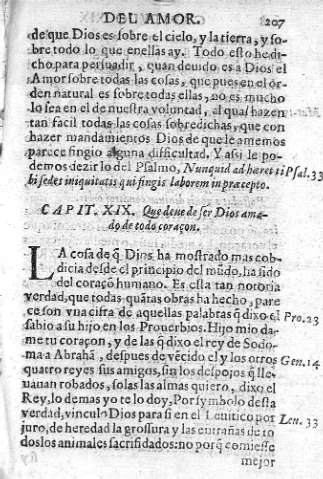 DEL AMOR. 207
de que Dios es sobre el cielo, y la tierra, y so-
bre todo lo que en ellas ay. Todo esto he di-
cho para persuadir, quan deuido es a Dios el
Amor sobre todas las cosas, que pues en el or-
den natural es sobre todas ellas, no es mucho
lo sea en el de nuestra voluntad, al qual hazen
tan facil todas las cosas sobredichas, que con
hazer mandamientos Dios de que le amemos
parece fingio alguna difficultad. Y assi le po-
demos dezir lo del Psalmo, Nunquid adhæret ti Psal. 33
bi sedes iniquitatis qui fingis laborem in præcepto.
CAPIT. XIX. Que deue de ser Dios ama-
do de todo coraçon.
LA cosa de q̃ Dios ha mostrado mas cob-
dicia desde el principio del mũdo, ha sido
del coraçõ humano. Es esta tan notoria
verdad, que todas quãtas obras ha hecho, pare
ce son vna cifra de aquellas palabras q̃ dixo el Pro. 23
sabio a su hijo en los Prouerbios. Hijo mio da-
me tu coraçon, y de las q̃ dixo el rey de Sodo-
ma a Abrahã, despues de vẽcido el y los otros Gen. 14
quatro reyes sus amigos, sin los despojos q̃ lle-
uauan robados, solas las almas quiero, dixo el
Rey, lo demas yo te lo doy, Por symbolo desta
verdad, vinculo Dios para si en el Leuitico por Leu. 33
juro, de heredad la grossura y las entrañas de to
dos los animales sacrificados: no porq̃ comiesse
mejor